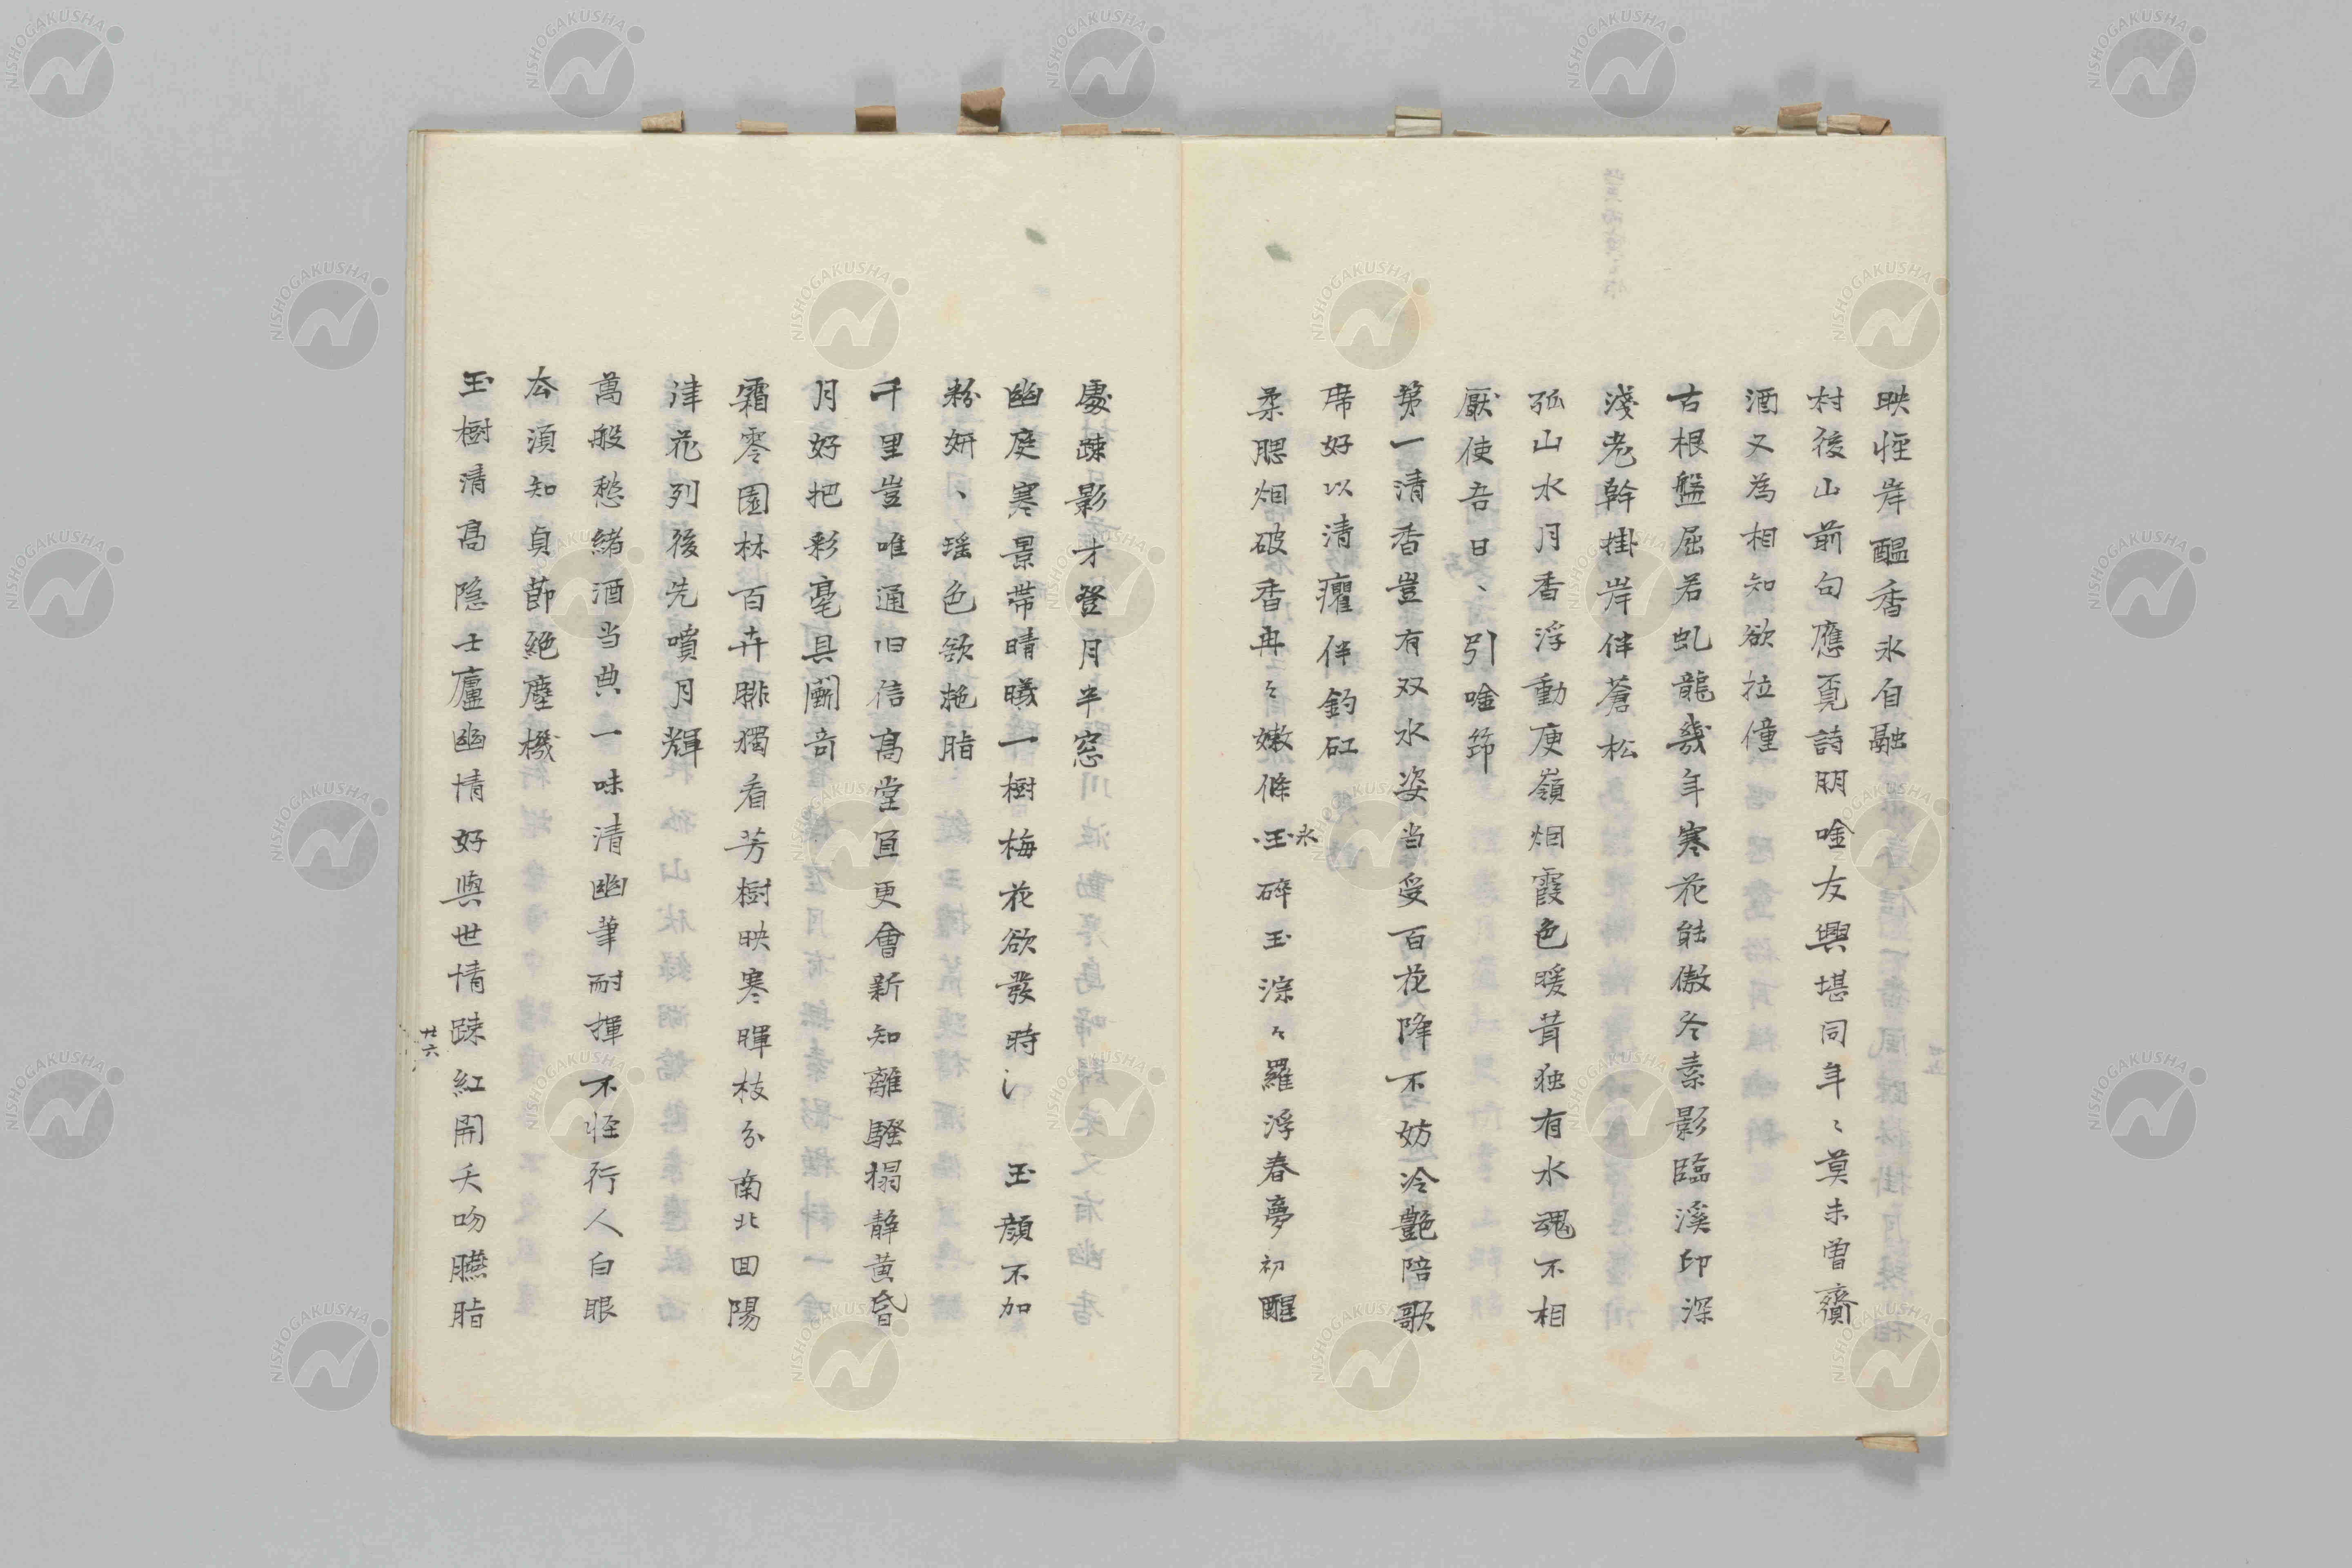 映怪岸醞香氷自融
村後山前句應覓詩朋唫友興堪同年〻莫未曽齎
酒又為相知欲拉僮
古根盤屈若虬龍幾年寒花能傲冬素影臨溪印深
淺老幹掛岸伴蒼松
孤山水月香浮動庾嶺烟霞色暖茸独有水魂不相
厭使吾日〻引唫筇
第一清香豈有双水姿当受百花降不妨冷艶陪歌
席好以清癯伴釣矼
柔腮烟破香冉〻嫩條氷玉碎玉淙〻羅浮春夢初醒
處疎影才登月半窓
幽庭寒景帯晴曦一樹梅花欲發時氵玉顔不加
粉妍〻瑶色欲拖脂
千里豈唯通旧信高堂宜更會新知離騒榻静黄昏
月好把彩毫具闘奇
霜零園林百卉腓獨看芳樹映寒暉枝分南北回陽
津花列後先噴月輝
萬般愁緒酒当典一味清幽筆耐揮不怪行人白眼
去須知貞節絶塵機
玉樹清高隐士廬幽情好與世情踈紅開夭吻臙脂
廿六